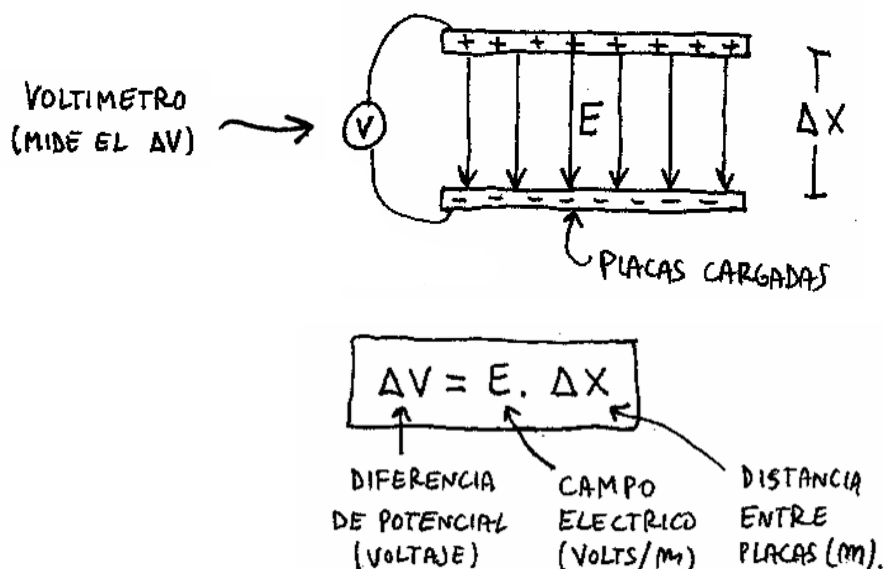 + + + + + + + +
VOLTIMETRO
(MIDE EL ΔV)
V
E
ΔX
- - - - - - - -
PLACAS CARGADAS
ΔV = E. ΔX
DIFERENCIA
DE POTENCIAL
(VOLTAJE)
CAMPO
ELECTRICO
(VOLTS/m)
DISTANCIA
ENTRE
PLACAS (m).